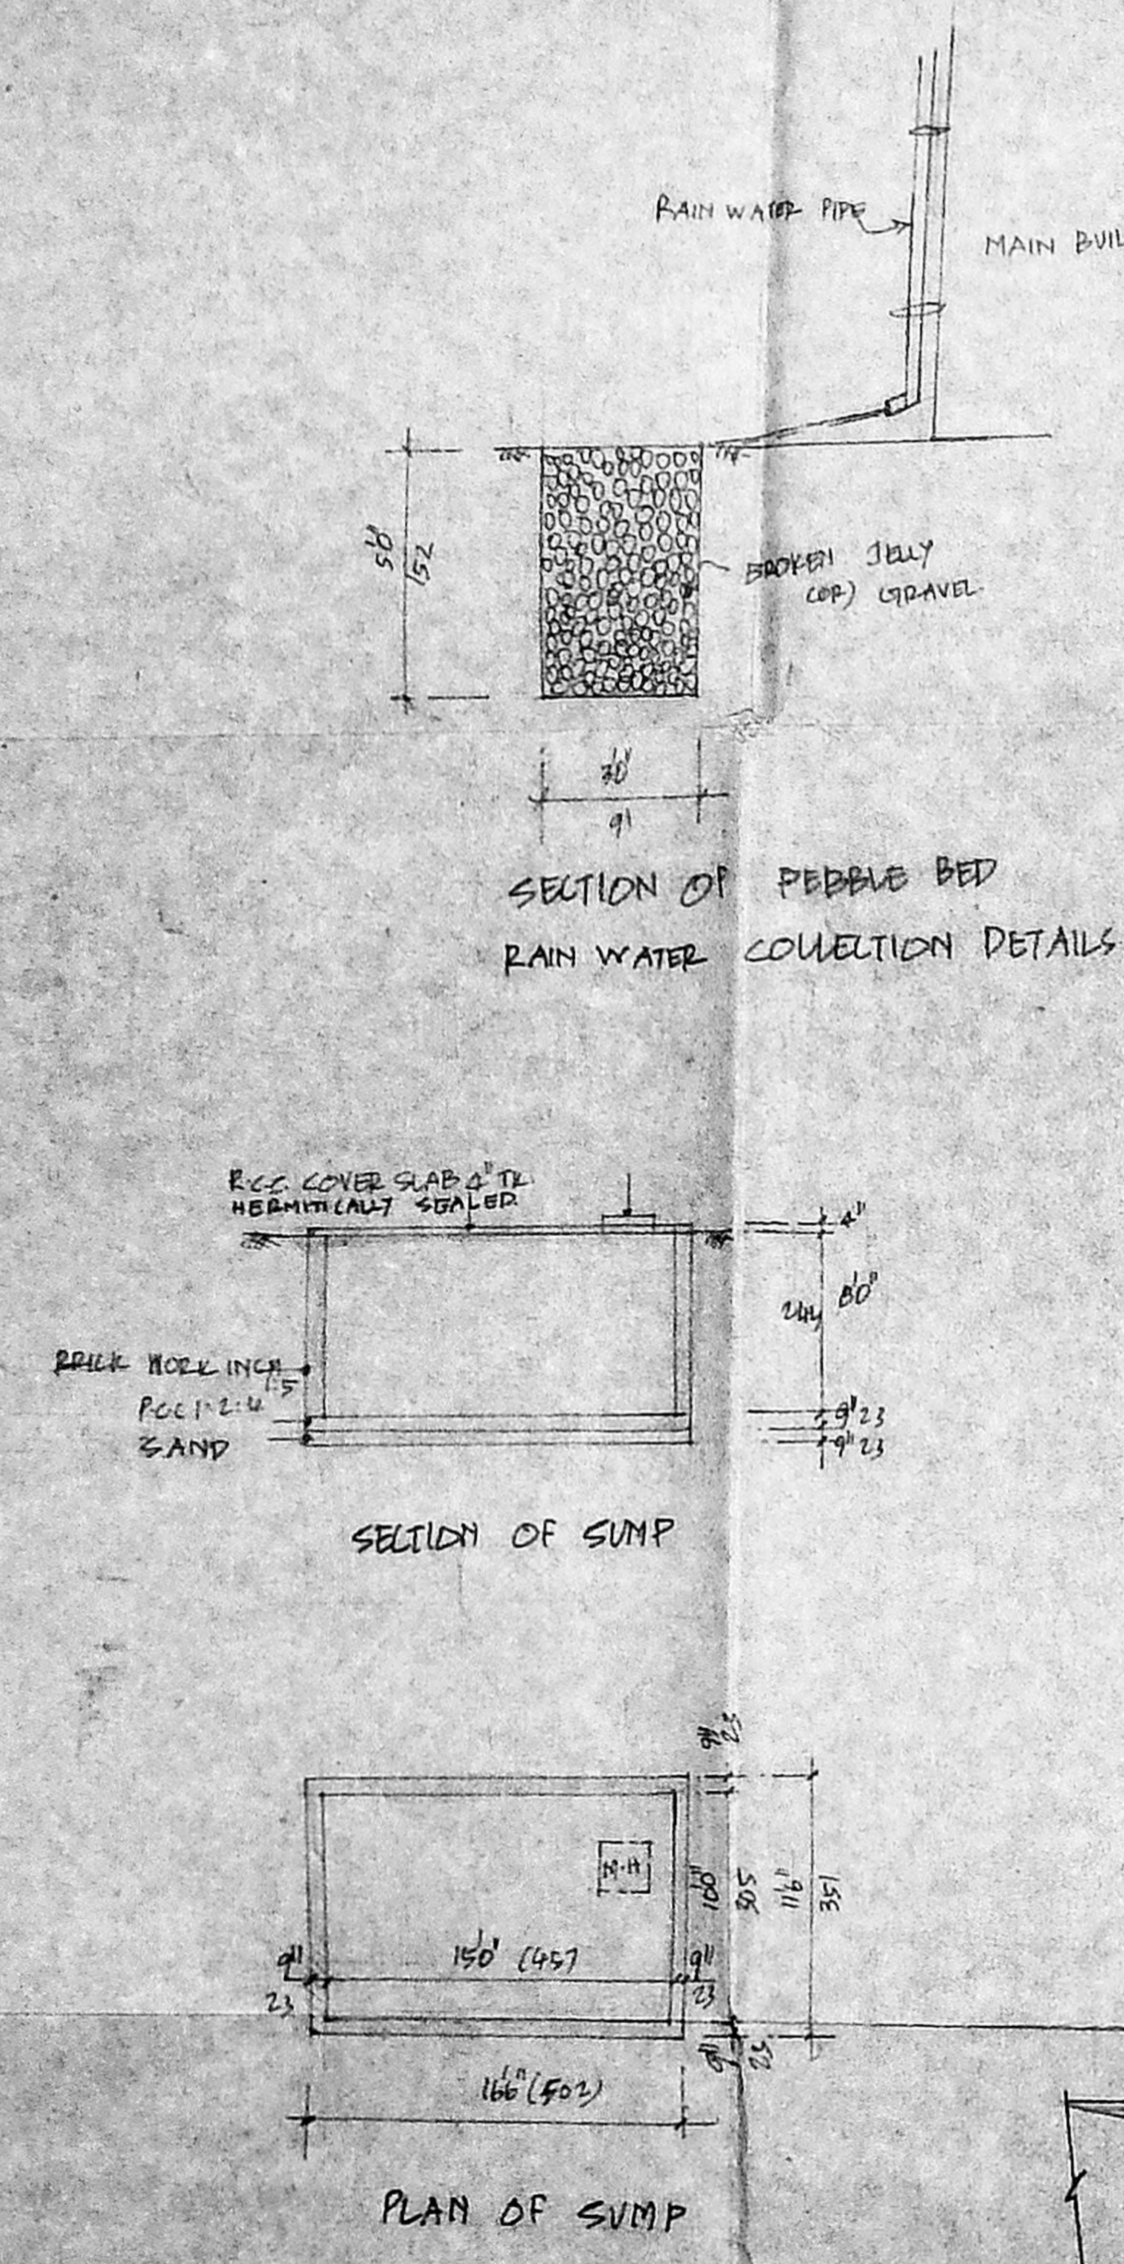 RAIN WATER PIPE
MAIN BUIL
5'0"
152
BROKEN JELLY
(OR) GRAVEL
3'0"
91
SECTION OF PEBBLE BED
RAIN WATER COLLECTION DETAILS
R.C.C. COVER SLAB 4" TK.
HERMITICALLY SEALED.
4"
8'0"
244
BRICK WORK IN CM
1:5
P.C.C 1:2:4
SAND
9" 23
9" 23
SECTION OF SUMP
9"
23
M.H
10'0"
305
11'6"
351
15'0" (457
9"
23
9"
23
9"
23
16'6" (502)
PLAN OF SUMP